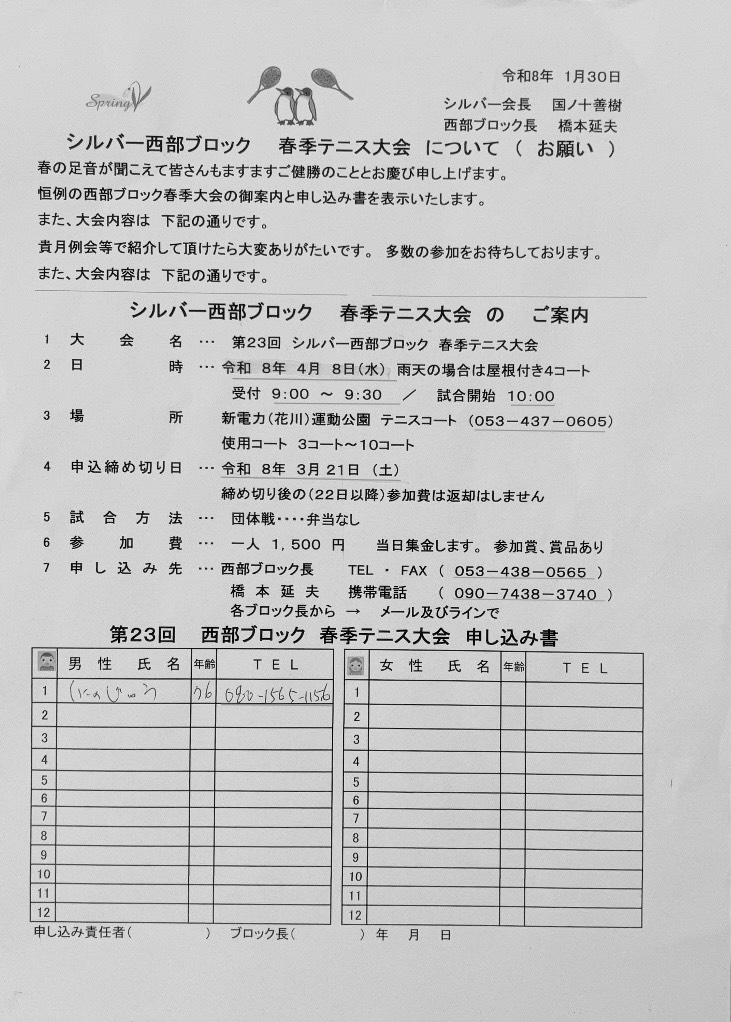 令和8年 1月30日
Spring
シルバー会長 国ノ十善樹
西部ブロック長 橋本延夫
シルバー西部ブロック 春季テニス大会 について ( お願い )
春の足音が聞こえて皆さんもますますご健勝のこととお慶び申し上げます。
恒例の西部ブロック春季大会の御案内と申し込み書を表示いたします。
また、大会内容は 下記の通りです。
貴月例会等で紹介して頂けたら大変ありがたいです。 多数の参加をお待ちしております。
また、大会内容は 下記の通りです。
シルバー西部ブロック 春季テニス大会 の ご案内
1 大会名 … 第23回 シルバー西部ブロック 春季テニス大会
2 日時 … 令和 8年 4月 8日(水) 雨天の場合は屋根付き4コート
受付 9:00 ～ 9:30 ／ 試合開始 10:00
3 場所 新電力(花川)運動公園 テニスコート (053-437-0605)
使用コート 3コート～10コート
4 申込締め切り日 … 令和 8年 3月 21日 (土)
締め切り後の(22日以降)参加費は返却はしません
5 試合方法 … 団体戦・・・・弁当なし
6 参加費 … 一人 1,500 円 当日集金します。 参加賞、賞品あり
7 申し込み先 … 西部ブロック長 TEL・FAX ( 053-438-0565 )
橋本延夫 携帯電話 ( 090-7438-3740 )
各ブロック長から → メール及びラインで
第23回 西部ブロック 春季テニス大会 申し込み書
男性氏名 年齢 TEL 女性氏名 年齢 TEL
1 76 1
2 2
3 3
4 4
5 5
6 6
7 7
8 8
9 9
10 10
11 11
12 12
申し込み責任者( ) ブロック長( ) 年 月 日